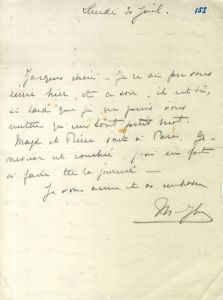 Lundi 30 Juil.
153
Jacques chéri — Je n'ai pu vous
écrire hier, et ce soir, il est si,
si tard que je ne puis vous
mettre qu'un tout petit mot.
Magd et Pierre sont à Paris
est couchée, j'ai
à faire la journée —
Je vous aime et vous embrasse